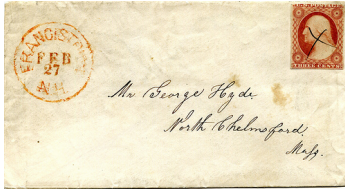 FRANCISTOWN
FEB
27
N.H.
THREE CENTS
Mr George Hyde.
North Chelmsford.
Mass.